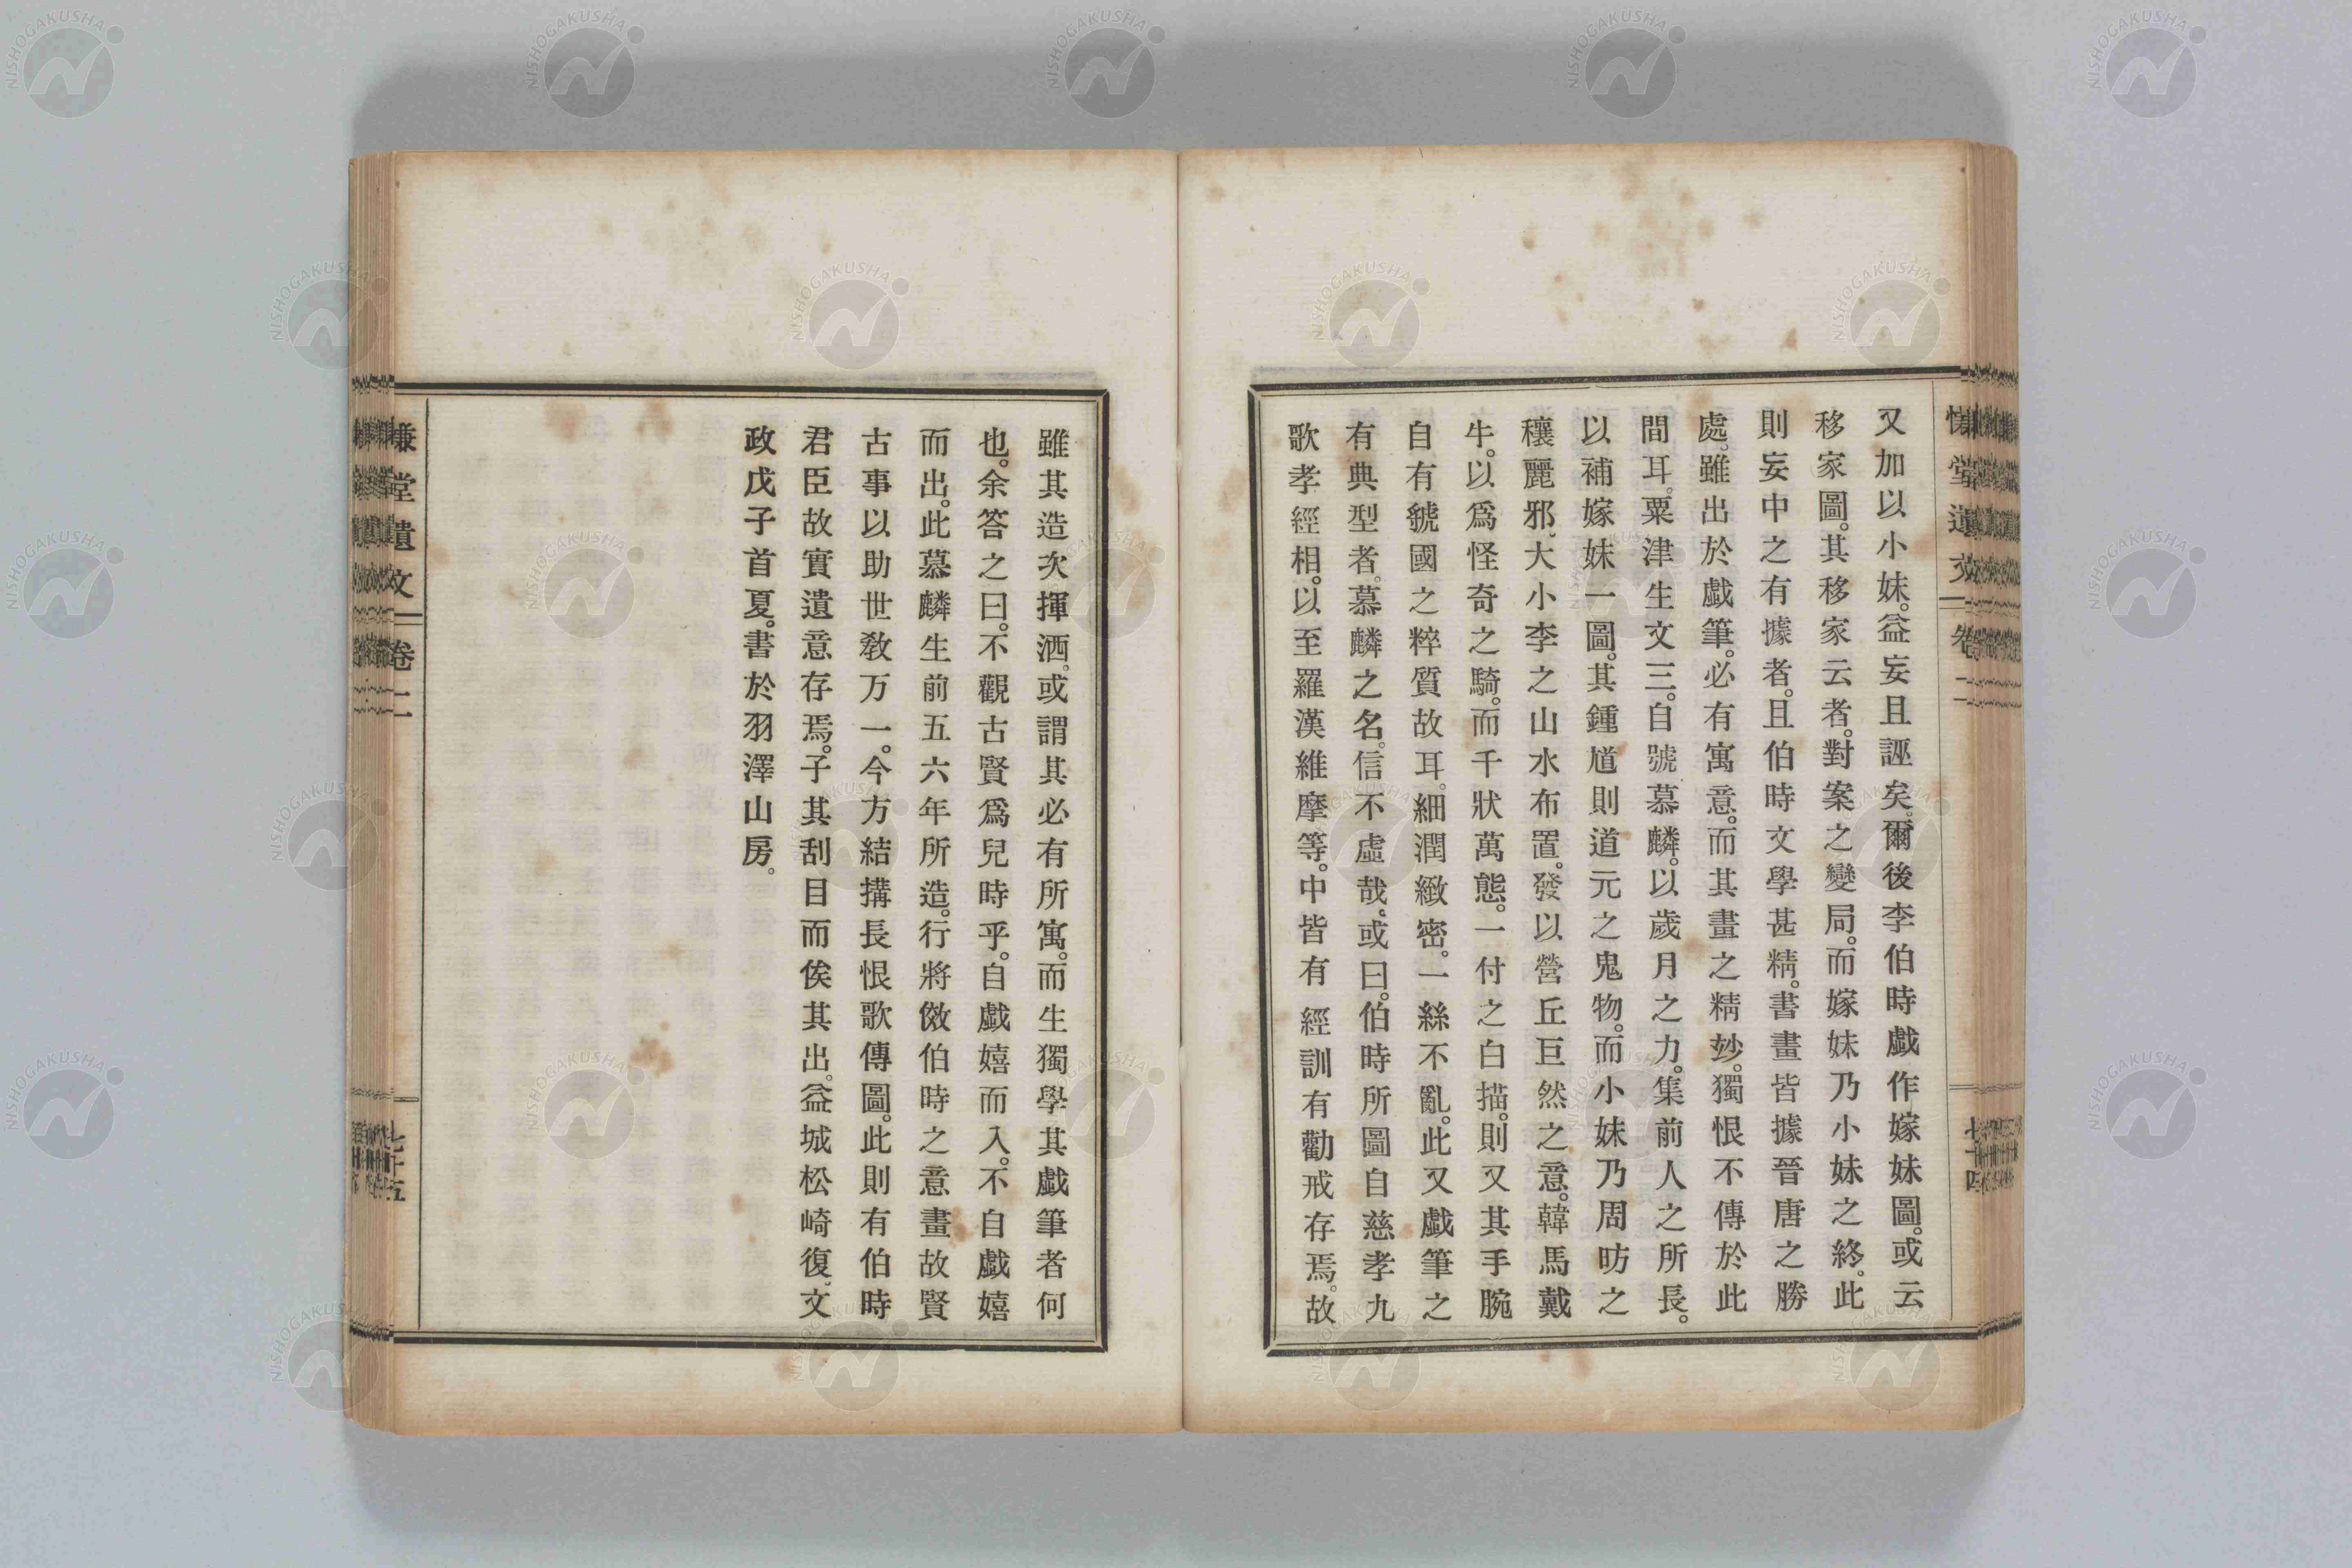 慊堂遺文 卷二 七十四
又加以小妹。益妄且誣矣。爾後李伯時戲作嫁妹圖。或云
移家圖。其移家云者。對案之變局。而嫁妹乃小妹之終。此
則妄中之有據者。且伯時文學甚精。書畫皆據晉唐之勝
處。雖出於戲筆。必有寓意。而其畫之精妙。獨恨不傳於此
間耳。粟津生文三。自號慕麟。以歲月之力。集前人之所長。
以補嫁妹一圖。其鍾馗則道元之鬼物。而小妹乃周昉之
穰麗邪。大小李之山水布置。發以營丘巨然之意。韓馬戴
牛。以爲怪奇之騎。而千狀萬態。一付之白描。則又其手腕
自有虢國之粹質故耳。細潤緻密。一絲不亂。此又戲筆之
有典型者。慕麟之名。信不虛哉。或曰。伯時所圖自慈孝九
歌孝經相。以至羅漢維摩等。中皆有經訓有勸戒存焉。故
雖其造次揮洒。或謂其必有所寓。而生獨學其戲筆者何
也。余答之曰。不觀古賢爲兒時乎。自戲嬉而入。不自戲嬉
而出。此慕麟生前五六年所造。行將倣伯時之意畫故賢
古事以助世敎万一。今方結搆長恨歌傳圖。此則有伯時
君臣故實遺意存焉。子其刮目而俟其出。益城松崎復。文
政戊子首夏。書於羽澤山房。
慊堂遺文 卷二 七十五
NISHOGAKUSHA